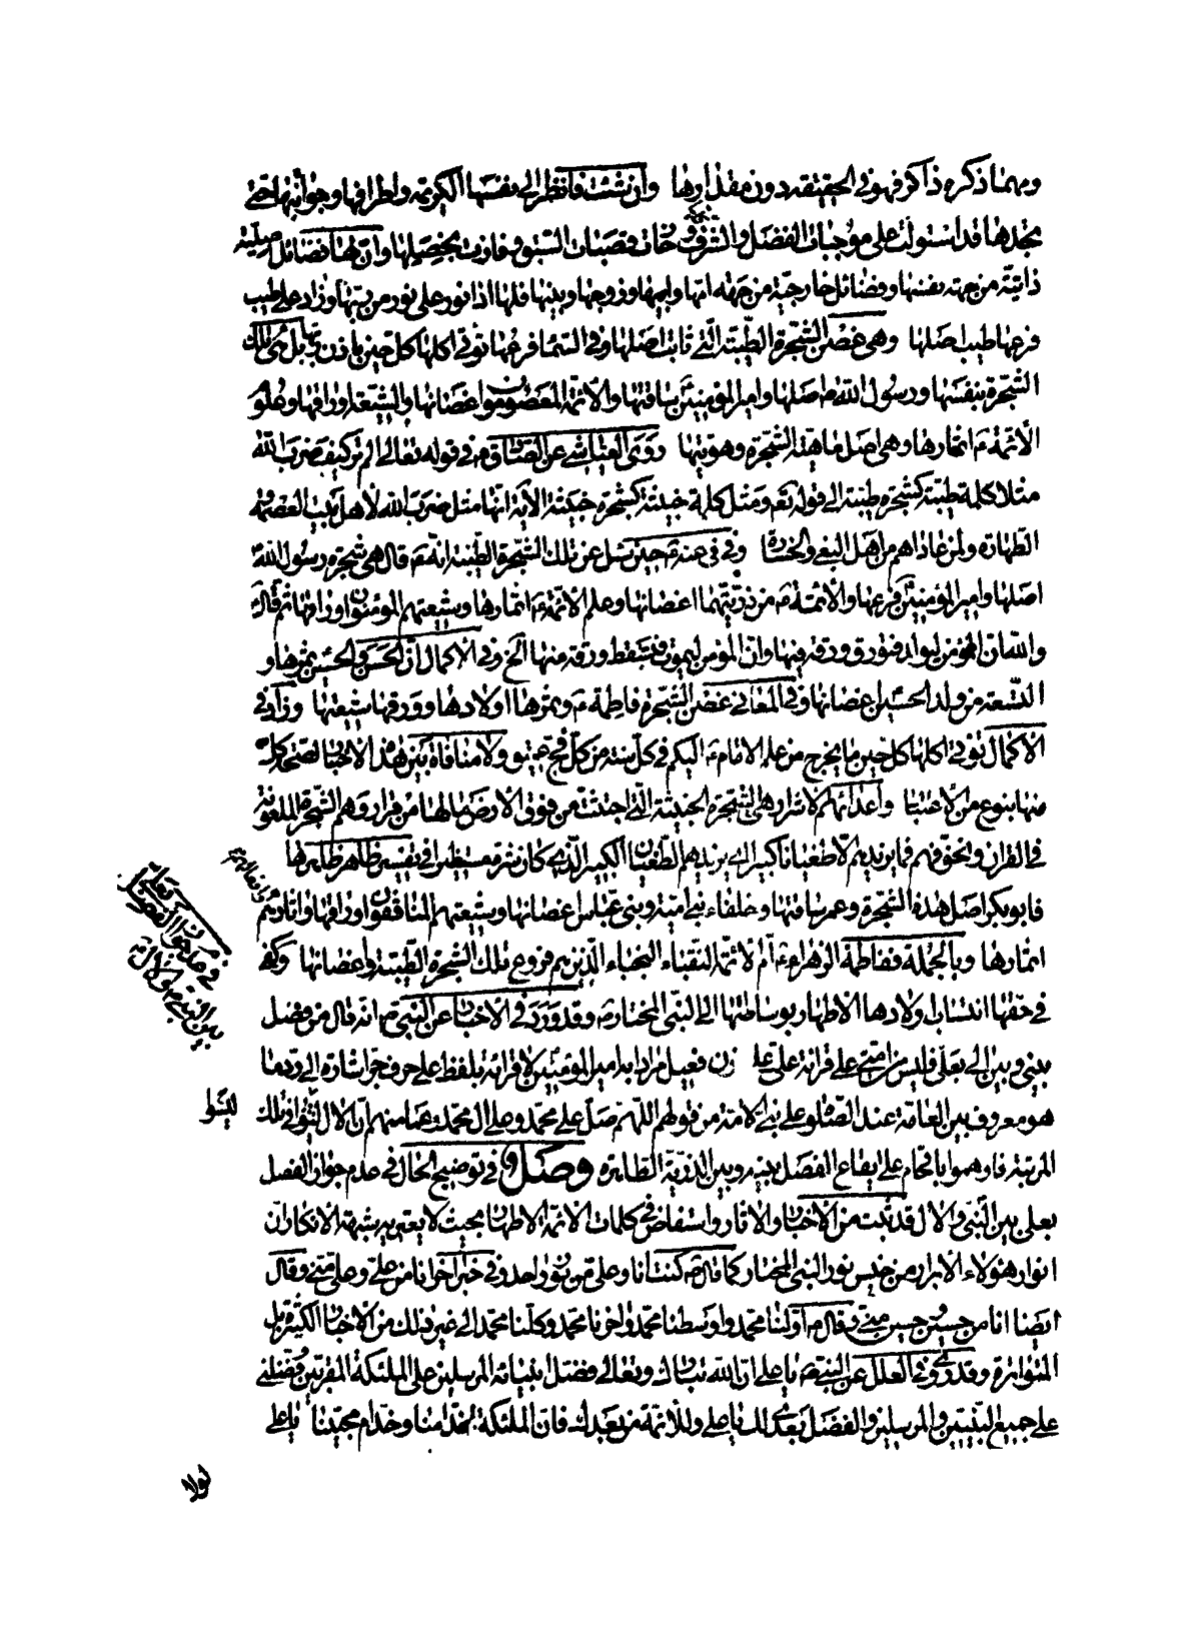 ومهما ذكره ذاكر فهو في الحقيقة دون مقدارها وان شئت فانظر الى نفسها الكريمة واطرافها وجوانبها حتى
تجدها قد استولت على موجبات الفضل والشرف وحازت قصبات السبق وفازت بخصلها وان لها فضائل اصلية
ذاتية من جهة نفسها وفضائل خارجية من جهة امها وابيها وزوجها وبنيها فلها اذا نور على نور من ربها وزاد على طيب
فرعها طيب اصلها وهي غصن الشجرة الطيبة التي ثابت اصلها وفي السماء فرعها تؤتي اكلها كل حين باذن ربها بل هي تلك
الشجرة بنفسها ورسول الله ص اصلها وامير المؤمنين ساقتها والائمة المعصومون اغصانها والشيعة اوراقها وعلوم
الائمة ع اثمارها وهي اصل ماهية الشجرة وهويتها وروى العياشي عن الصادق ع في قوله تعالى الم تر كيف ضرب الله
مثلا كلمة طيبة كشجرة طيبة الى قوله تع ومثل كلمة خبيثة كشجرة خبيثة الاية انها مثل ضرب الله لاهل بيت العصمة
الطهارة ولمن عاداهم من اهل البغي والخسارة وفي عنه ع حين سئل عن تلك الشجرة الطيبة انه ع قال هي شجرة رسول الله
اصلها وامير المؤمنين فرعها والائمة ع من ذريتهما اغصانها وعلم الائمة ع اثمارها وشيعتهم المؤمنون اوراقها ثم قال ع
والله ان المؤمن ليولد فتورق ورقة فيها وان المؤمن ليموت فتسقط ورقة منها الخ وفي الاكمال ان الحسن والحسين ثمرها و
التسعة من ولد الحسين اغصانها وفي المعاني غصن الشجرة فاطمة ع وثمرها اولادها وورقها شيعتها وزاد في
الاكمال تؤتي اكلها كل حين ما يخرج من علم الامام ع اليكم في كل سنة من كل فج عميق ولا منافاة بين هذه الاخبار لصحة كل
منها بنوع من الاعتبار واعدائهم الاشرار هي الشجرة الخبيثة التي اجتثت من فوق الارض مالها من قرار وهم الشجرة الملعونة
في القران ونخوفهم فما يزيدهم الا طغيانا كبيرا اي يزيدهم الطغيان الكبير الذي كان شره مستطيرا في تفسير ظاهر ظاهرها
فابوبكر اصل هذه الشجرة وعمر ساقتها وخلفاء بني امية وبني عباس اغصانها وشيعتهم المنافقون اوراقها
اثمارها وبالجملة ففاطمة الزهراء ع ام الائمة النقباء النجباء الذين هم فروع تلك الشجرة الطيبة واغصانها وكفى
في حقها انتساب اولادها الاطهار بوساطتها الى النبي المختار ص وقد ورد في الاخبار عن النبي ص انه قال من فصل
بيني وبين الي بعلي فليس من امتي على قرائة علي فعيل مرادا به امير المؤمنين لا قرائة بلفظ على حرف جر اشارة الى رد ما
هو معروف بين العامة عند الصلوة على نبي الامة من قولهم اللهم صل على محمد وعلى ال محمد زعما منهم ان الال ليسوا في تلك
ليسوا
المرتبة فاوهموا باقحام على ايقاع الفصل بينه وبين الذرية الطاهرة وصل في توضيح الحال في عدم جواز الفصل
بعلى بين النبي والال قد ثبت من الاخبار والاثار واستفاض في كلمات الائمة الاطهار بحيث لا يعتريه شبهة الانكار ان
انوار هؤلاء الابرار من جنس نور النبي المختار كما قال ص كنت انا وعلي من نور واحد وفي خبر اخر انا من علي وعلي مني وقال
ايضا انا من حسين وحسين مني وقال ع اولنا محمد واوسطنا محمد واخرنا محمد وكلنا محمد الى غير ذلك من الاخبار الكثيرة بل
المتواترة وقد روي في العلل عن النبي ص يا علي ان الله تبارك وتعالى فضل انبيائه المرسلين على الملئكة المقربين وفضلني
على جميع النبيين والمرسلين والفضل بعدي لك يا علي وللائمة من بعدك فان الملئكة لخدامنا وخدام محبينا يا علي
لولا